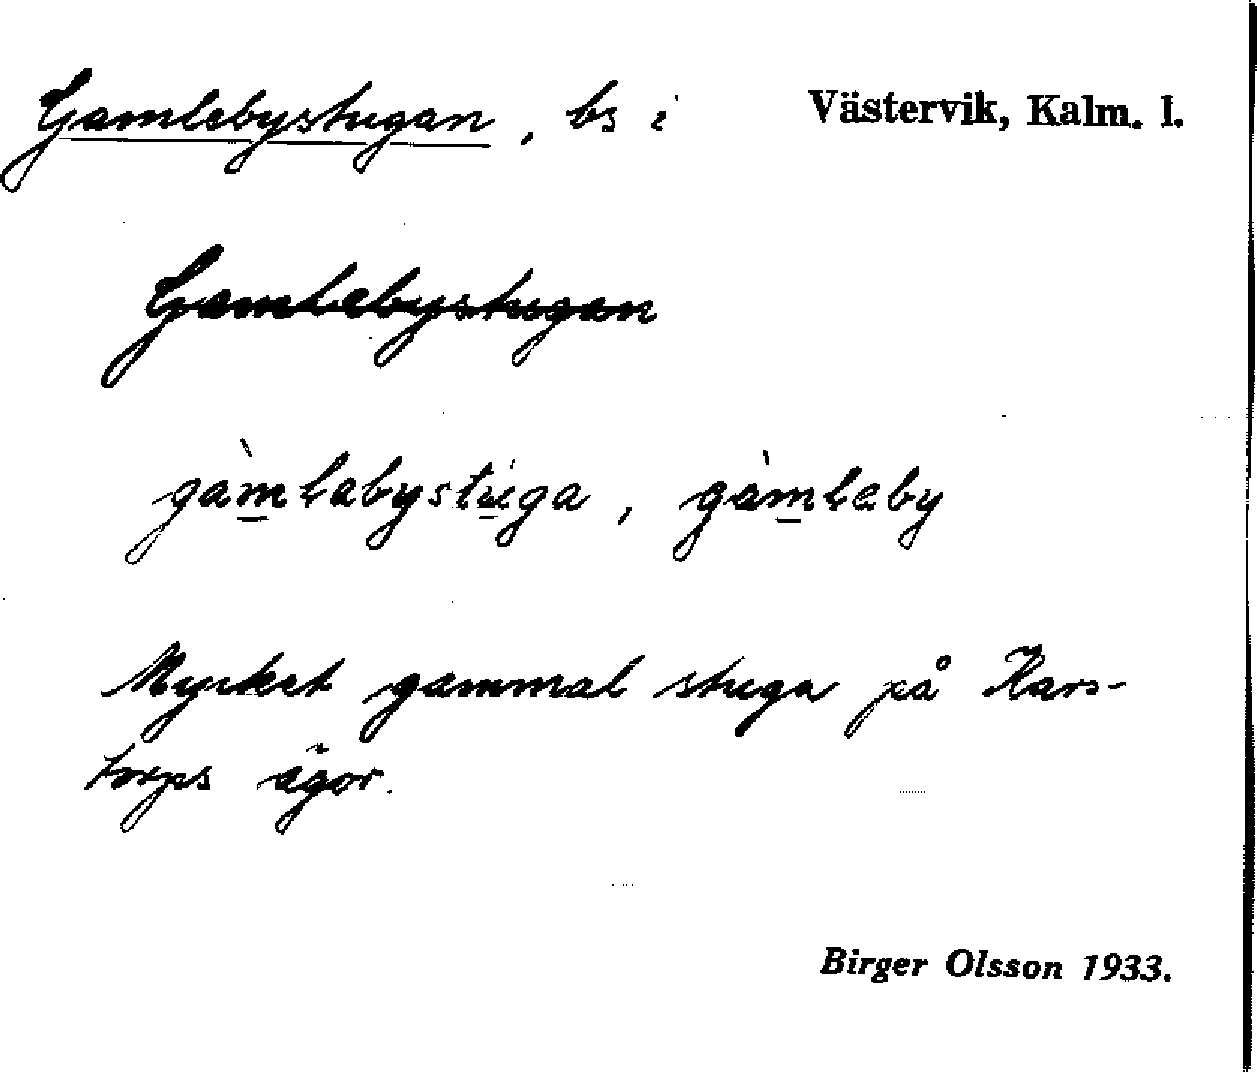 Gamlebystugan, bs i Västervik, Kalm. l.
Gamlebystugan
gàmlebystuga, gàmleby
Mycket gammal stuga på Kars-
torps ägor.
Birger Olsson 1933.